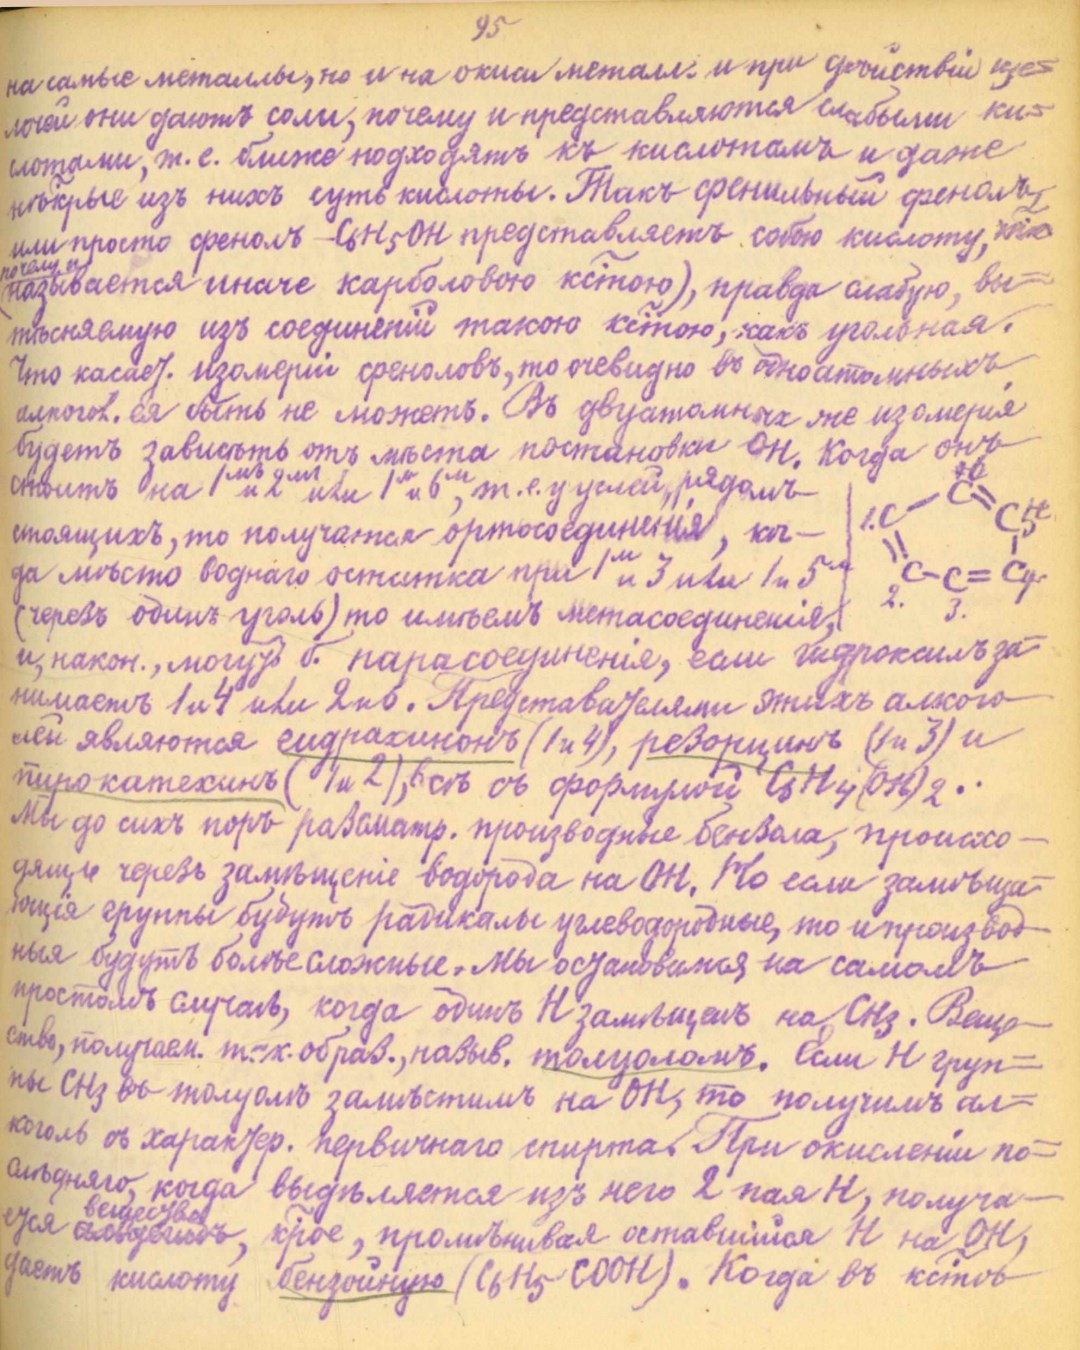 95
на самые металлы, но и на окиси металл. и при дѣйствіи ще-
лочей они даютъ соли, почему и представляются слабыми ки-
слотами, т. е. ближе подходятъ къ кислотамъ и даже
нѣкрые изъ нихъ суть кислоты. Такъ фенильный фенолъ,
или просто фенолъ – C6H5OH представляетъ собою кислоту,
почему и
(называется иначе карболовою кстою), правда слабую, вы-
тѣсняемую изъ соединеній такою кстою, какъ угольная.
Что касает. изомеріи феноловъ, то очевидно въ одноатомныхъ
алкогол. ея быть не можетъ. Въ двуатомных же изомерія
будетъ зависѣть отъ мѣста постановки OH. Когда онъ
стоитъ на 1мъ и 2мъ или 1м и 6м, т. е. у углей, рядомъ
стоящихъ, то получаются ортосоединенія, ког-
да мѣсто воднаго остатка при 1м и 3 или 1 и 5м
(черезъ одинъ уголь) то имѣемъ метасоединенія,
1. C C C 5 C 4 C C 2. 3.
и, након., могутъ б. парасоединенія, если гидроксилъ за-
нимаетъ 1 и 4 или 2 и 6. Представителями этихъ алкого-
лей являются гидрахинонъ (1 и 4), резорцинъ (1 и 3) и
пирокатехинъ (1 и 2), всѣ съ формулой C6H4(OH)2..
Мы до сихъ поръ разсматр. производные бензола, происхо-
дящіе черезъ замѣщеніе водорода на OH. Но если замѣща-
ющія группы будутъ радикалы углеводородные, то и производ-
ныя будутъ болѣе сложные. Мы остановимся, на самомъ
простомъ случаѣ, когда одинъ H замѣщенъ на CH3. Веще-
ство, получаем. так. образ., назыв. толуоломъ. Если H груп-
пы CH3 въ толуолѣ замѣстимъ на OH, то получимъ ал-
коголь съ характер. первичнаго спирта. При окисленіи по-
слѣдняго, когда выдѣляется изъ него 2 пая H, получа-
вещество
ется альдегидъ, крое, промѣнивая оставшійся H на OH,
даетъ кислоту бензойную (C6H5COOH). Когда въ кстѣ